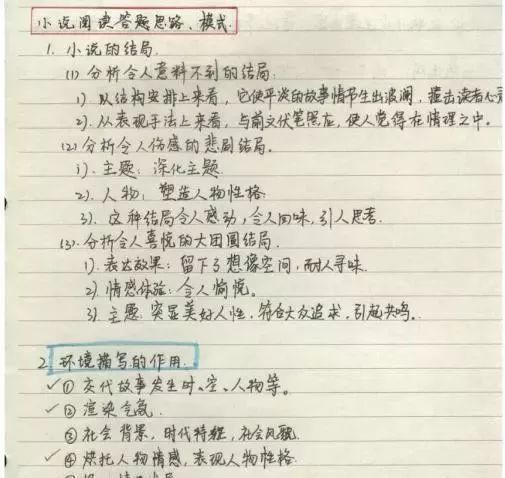 小说阅读答题思路、模式.
1. 小说的结局.
(1) 分析令人意料不到的结局:
1). 从结构安排上来看, 它使平淡的故事情节生出波澜, 撞击读者心灵
2). 从表现手法上来看, 与前文伏笔照应, 使人觉得在情理之中.
(2) 分析令人伤感的悲剧结局.
1). 主题: 深化主题.
2). 人物: 塑造人物性格.
3). 这种结局令人感动, 令人回味, 引人思考.
(3). 分析令人喜悦的大团圆结局.
1). 表达效果: 留下了想像空间, 耐人寻味.
2). 情感体验: 令人愉悦.
3). 主题: 突显美好人性, 符合大众追求, 引起共鸣.
2. 环境描写的作用.
✓① 交代故事发生时、空、人物等。
✓② 渲染气氛.
③ 社会背景, 时代特征, 社会风貌.
✓④ 烘托人物情感, 表现人物性格.